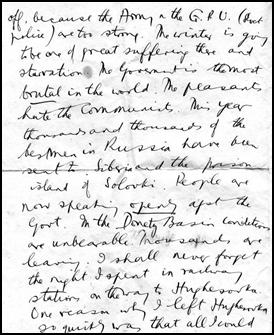 off, because the Army & the G.P.U. (Secret
police) are too strong. The winter is going
to be one of great suffering there and
starvation. The Government is the most
brutal in the world. The peasants
hate the Communists. This year
thousands and thousands of the
best men in Russia have been
sent to Siberia and the prison
island of Solovki. People are
now speaking openly agst the
Govt. In the Donetz Basin conditions
are unbearable. Thousands are
leaving. I shall never forget
the night I spent in railway
stations on the way to Hughesovka.
One reason why I left Hughesovka
so quickly was that all I could